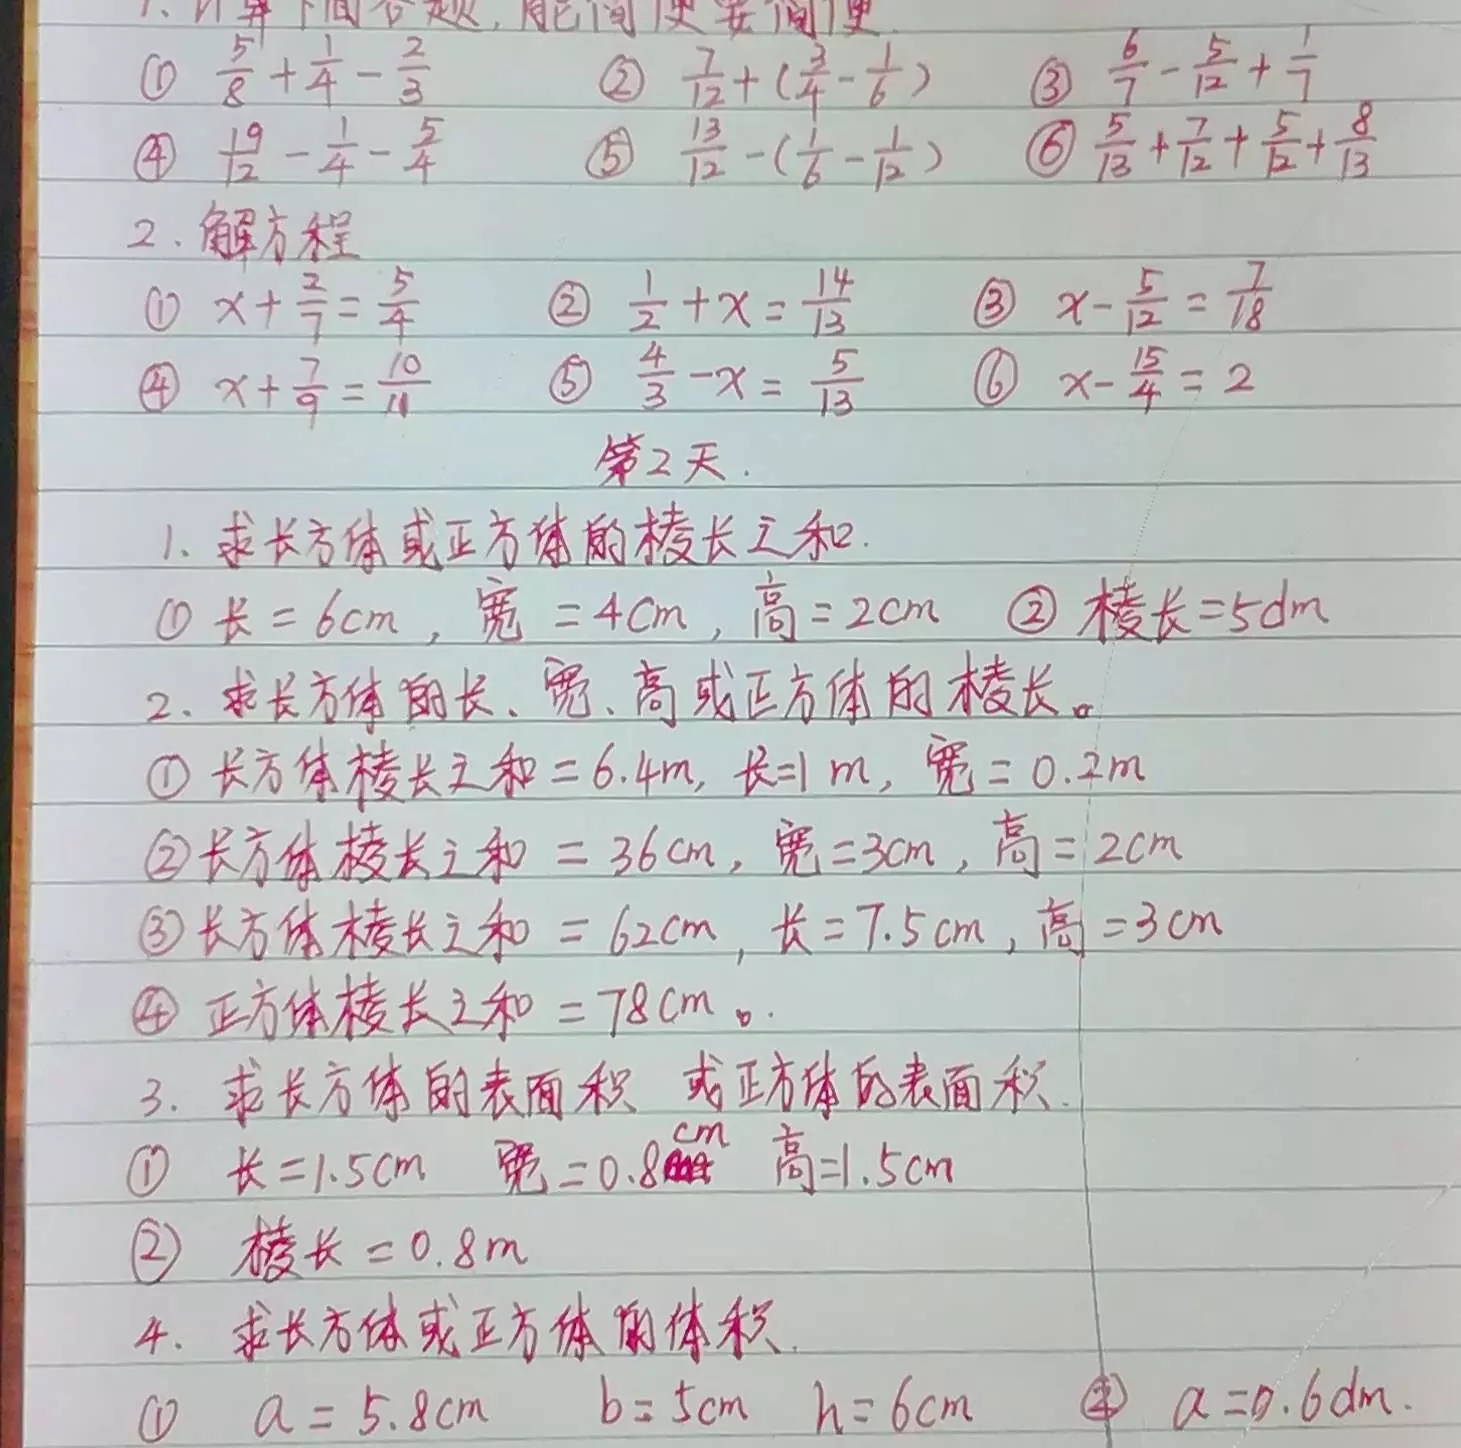 1. 计算下面各题,能简便要简便.
① 5/8 + 1/4 - 2/3 ② 7/12 + (3/4 - 1/6) ③ 6/7 - 5/12 + 1/7
④ 19/12 - 1/4 - 5/4 ⑤ 13/12 - (1/6 - 1/12) ⑥ 5/13 + 7/12 + 5/12 + 8/13
2. 解方程
① x + 2/7 = 5/4 ② 1/2 + x = 14/13 ③ x - 5/12 = 7/18
④ x + 7/9 = 10/11 ⑤ 4/3 - x = 5/13 ⑥ x - 15/4 = 2
第2天.
1. 求长方体或正方体的棱长之和.
① 长=6cm, 宽=4cm, 高=2cm ② 棱长=5dm
2. 求长方体的长、宽、高或正方体的棱长。
① 长方体棱长之和=6.4m, 长=1m, 宽=0.2m
② 长方体棱长之和=36cm, 宽=3cm, 高=2cm
③ 长方体棱长之和=62cm, 长=7.5cm, 高=3cm
④ 正方体棱长之和=78cm。.
3. 求长方体的表面积 或正方体的表面积.
① 长=1.5cm 宽=0.8cm 高=1.5cm
② 棱长=0.8m
4. 求长方体或正方体的体积.
① a=5.8cm b=5cm h=6cm ② a=0.6dm.